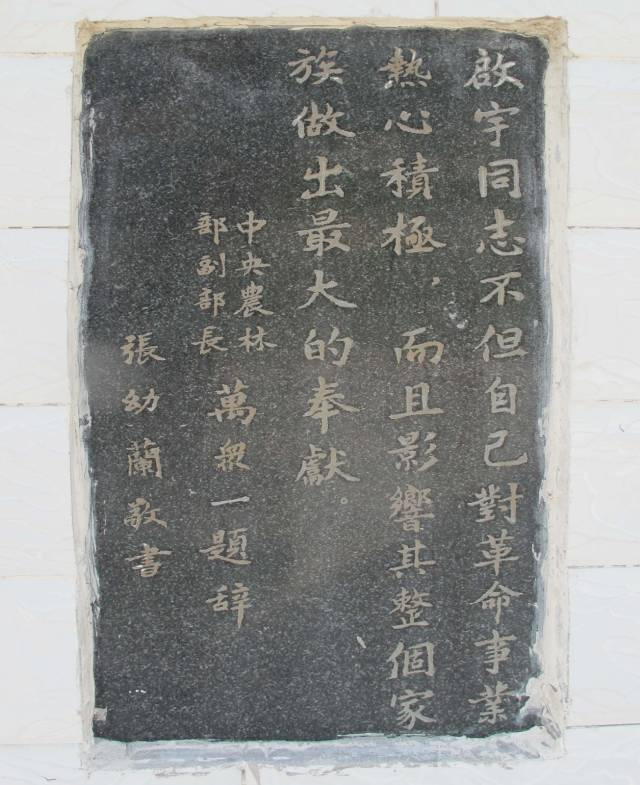 啟宇同志不但自己對革命事業
熱心積極，而且影響其整個家
族做出最大的奉獻。
中央農林
部副部長
萬衆一題辞
張幼蘭敬書